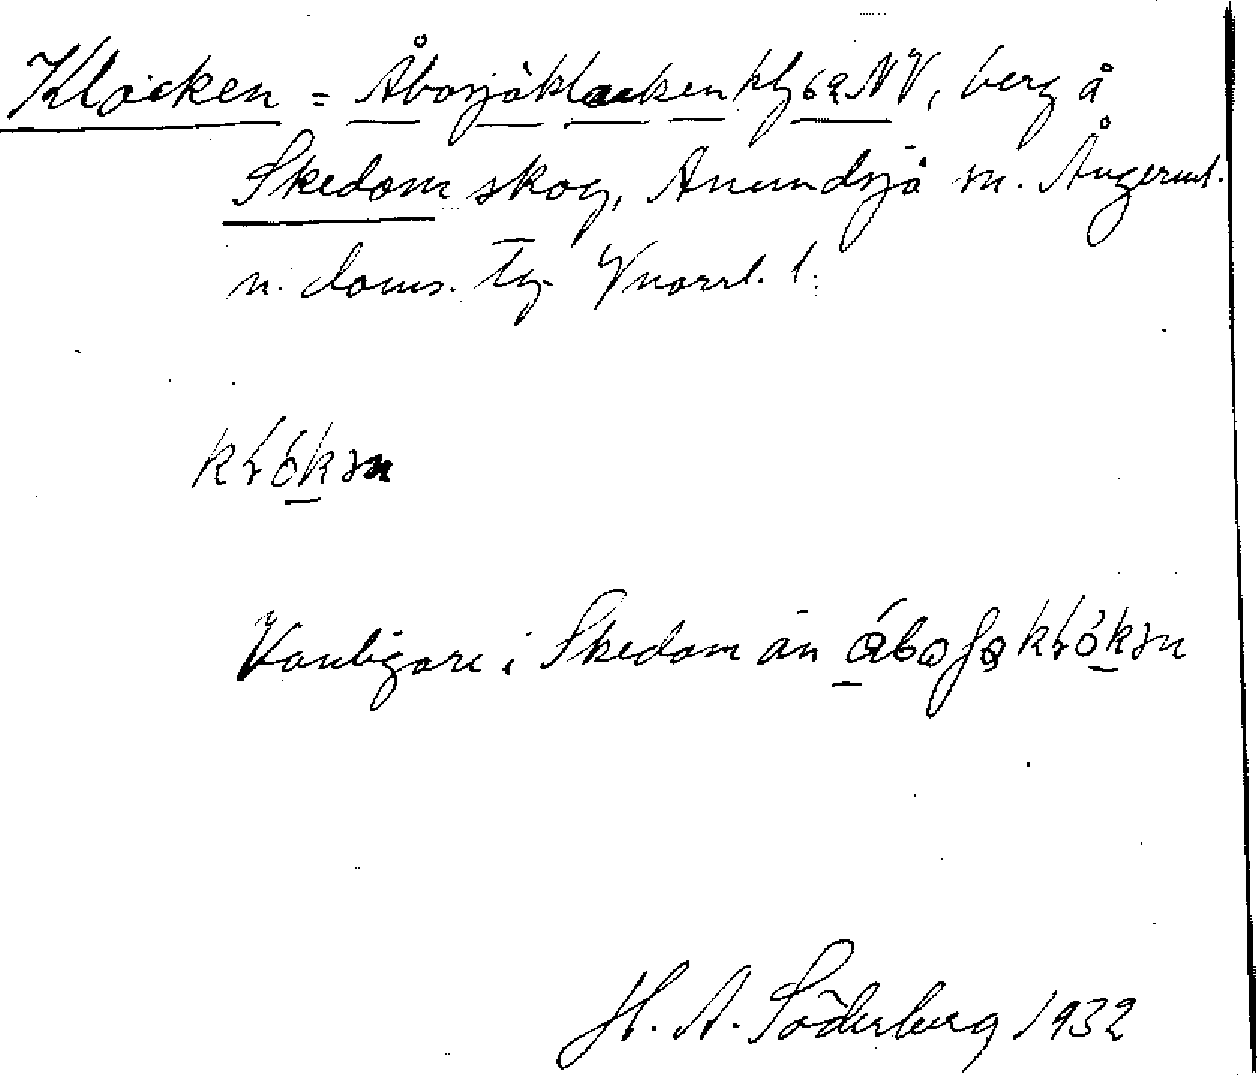 Klocken = Åbosjöklacken kbl 62 NV, berg å
Skedom skog, Anundsjö sn. Ångerml.
n. doms. Tg. Vnorrl. l.
Vanligare i Skedom än
H. A. Söderberg 1932